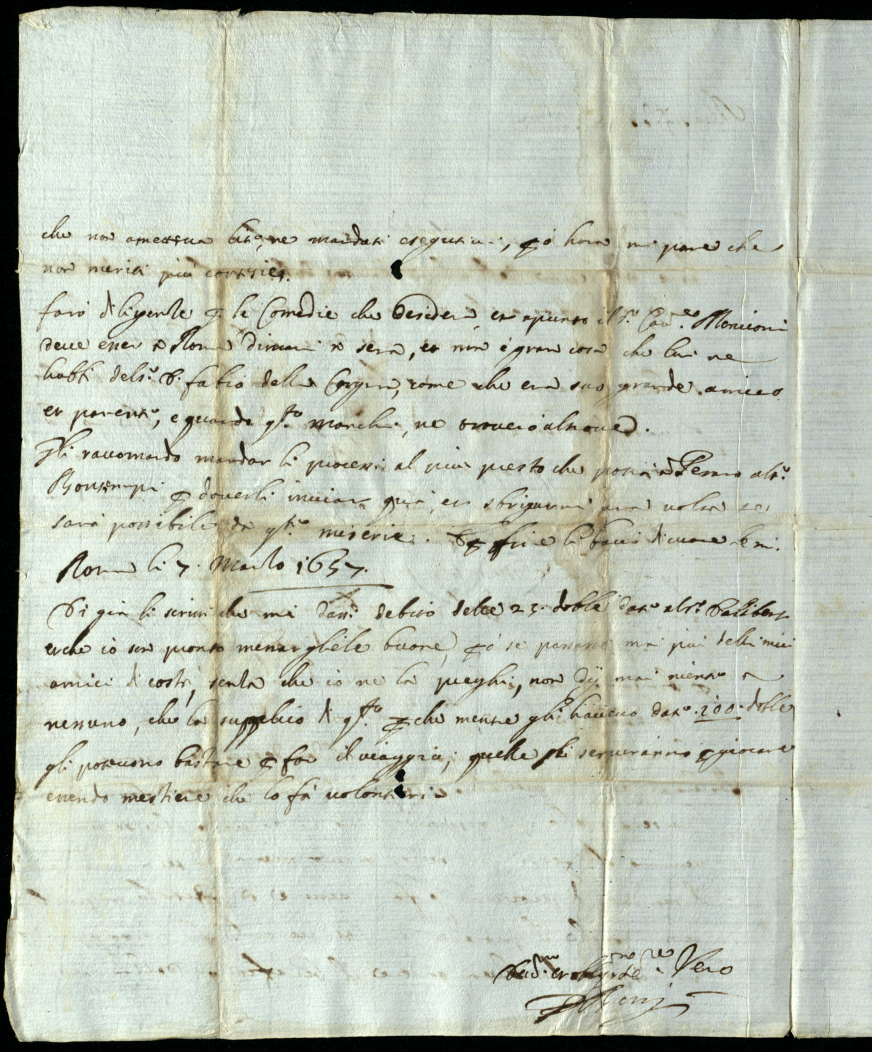 che non ometteva  ne mandati esegutivi, però hora mi pare che
non meriti più cortesie.
farò diligenze per le Comedie che desidera, et apunto il Sr. Cav.re Marioni
deve esser a Roma  sera, et non è gran cosa che lui ne
habbi del Sr. fabio della Corgna, come che era suo grande amico
et parente, e quando qsto manchi, ne troverò altrove.
Gli raccomando mandar li processi al più presto che possa a Pesaro al Sr.
Bontempi per doverli inviar quà, et sbrigarmi una volta se
sarà possibile da qste miserie. et li bacio di cuore le mi.
Roma li 7. Marzo 1657.
Di già li scrissi che mi dassi debito delle 25. doble date al Sr.
e che io son pronto menargliele buone, però se passano mai più delli miei
amici di costì, senza che io ne la preghi, non dij mai niente a
nessuno, che la supplico di qsto perche mentre gli havevo dato 200. doble
gli potevono bastare per far il viaggio, quelle gli serviranno per giocare
essendo mestiere che lo fà volontieri
 Vero